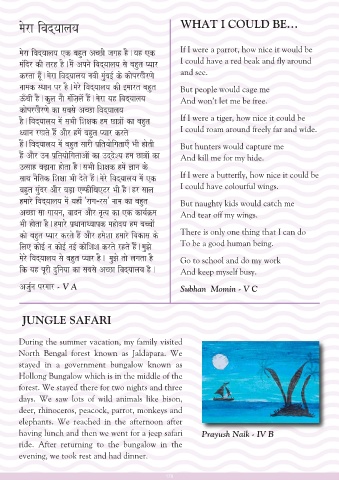 मेरा विद्यालय
मेरा विद्यालय एक बहुत अच्छी जगह है। यह एक
मंदिर की तरह है। मैं अपने विद्यालय से बहुत प्यार
करता हूँ। मेरा विद्यालय नवी मुंबई के कोपरखैरणे
नामक स्थान पर है। मेरे विद्यालय की इमारत बहुत
ऊँची है। कुल नौ मंजिलें हैं। मेरा यह विद्यालय
कोपरखैरणे का सबसे अच्छा विद्यालय
है। विद्यालय में सभी शिक्षक हम छात्रों का बहुत
ध्यान रखते हैं और हमें बहुत प्यार करते
हैं। विद्यालय में बहुत सारी प्रतियोगिताएँ भी होती
हैं और उन प्रतियोगिताओं का उद्देश्य हम छात्रों का
उत्साह बढ़ाना होता है। सभी शिक्षक हमें ज्ञान के
साथ नैतिक शिक्षा भी देते हैं। मेरे विद्यालय में एक
बहुत सुंदर और बड़ा एम्फीथिएटर भी है। हर साल
हमारे विद्यालय में यहाँ 'राग-रस' नाम का बहुत
अच्छा सा गायन, वादन और नृत्य का एक कार्यक्रम
भी होता है। हमारे प्रधानाध्यापक महोदय हम बच्चों
को बहुत प्यार करते हैं और हमेशा हमारे विकास के
लिए कोई न कोई नई कोशिश करते रहते हैं। मुझे
मेरे विद्यालय से बहुत प्यार है। मुझे तो लगता है
कि यह पूरी दुनिया का सबसे अच्छा विद्यालय है।
अर्जुन परगार - V A
WHAT I COULD BE...
If I were a parrot, how nice it would be
I could have a red beak and fly around
and see.
But people would cage me
And won't let me be free.
If I were a tiger, how nice it could be
I could roam around freely far and wide.
But hunters would capture me
And kill me for my hide.
If I were a butterfly, how nice it could be
I could have colourful wings.
But naughty kids would catch me
And tear off my wings.
There is only one thing that I can do
To be a good human being.
Go to school and do my work
And keep myself busy.
Subhan Momin - V C
JUNGLE SAFARI
During the summer vacation, my family visited
North Bengal forest known as Jaldapara. We
stayed in a government bungalow known as
Hollong Bungalow which is in the middle of the
forest. We stayed there for two nights and three
days. We saw lots of wild animals like bison,
deer, rhinoceros, peacock, parrot, monkeys and
elephants. We reached in the afternoon after
having lunch and then we went for a jeep safari
ride. After returning to the bungalow in the
evening, we took rest and had dinner.
Prayush Naik - IV B